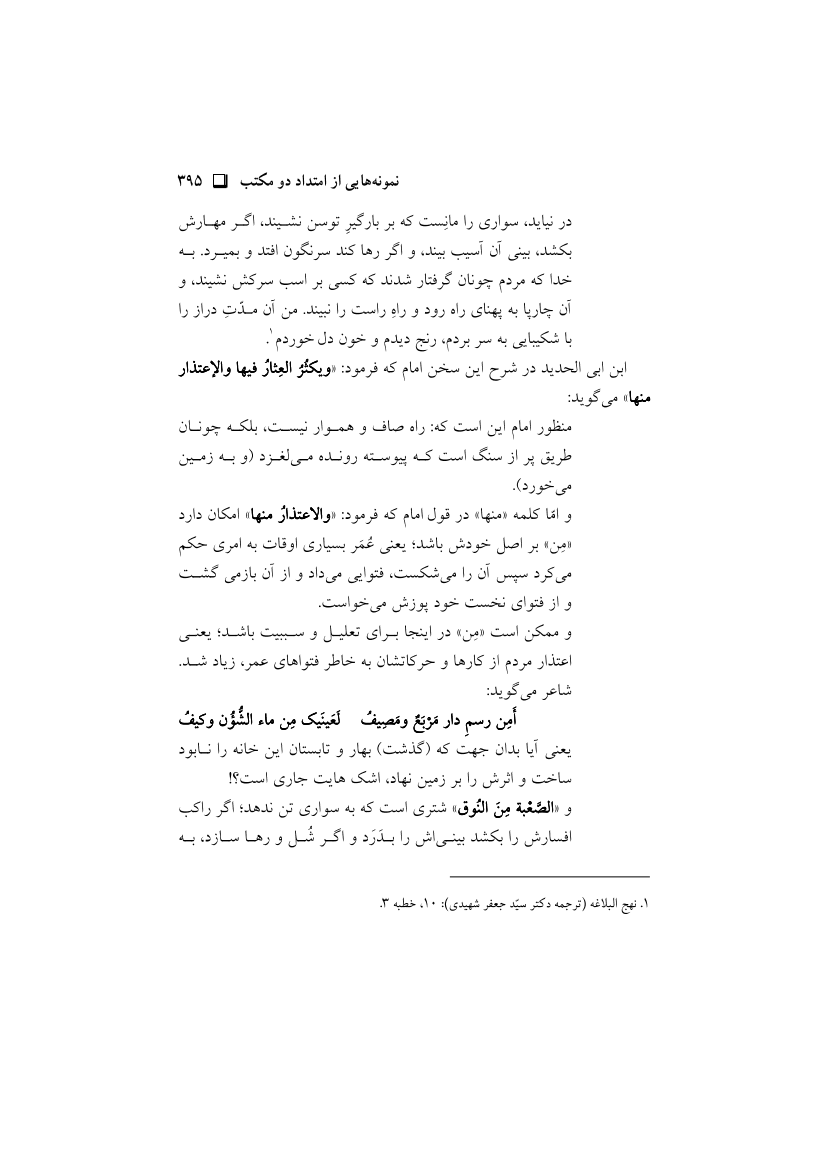 نمونه‌هایی از امتداد دو مکتب ❑ ۳۹۵
در نیاید، سواری را مانِست که بر بارگیرِ توسن نشـیند، اگـر مهـارش
بکشد، بینی آن آسیب بیند، و اگر رها کند سرنگون افتد و بمیـرد. بـه
خدا که مردم چونان گرفتار شدند که کسی بر اسب سرکش نشیند، و
آن چارپا به پهنای راه رود و راهِ راست را نبیند. من آن مـدّتِ دراز را
با شکیبایی به سر بردم، رنج دیدم و خون دل خوردم¹.
ابن ابی الحدید در شرح این سخن امام که فرمود: «ویکثُرُ العِثارُ فیها والإعتذار
منها» می‌گوید:
منظور امام این است که: راه صاف و همـوار نیسـت، بلکـه چونـان
طریق پر از سنگ است کـه پیوسـته رونـده مـی‌لغـزد (و بـه زمـین
می‌خورد).
و امّا کلمه «منها» در قول امام که فرمود: «والاعتذارُ منها» امکان دارد
«مِن» بر اصل خودش باشد؛ یعنی عُمَر بسیاری اوقات به امری حکم
می‌کرد سپس آن را می‌شکست، فتوایی می‌داد و از آن بازمی گشـت
و از فتوای نخست خود پوزش می‌خواست.
و ممکن است «مِن» در اینجا بـرای تعلیـل و سـببیت باشـد؛ یعنـی
اعتذار مردم از کارها و حرکاتشان به خاطر فتواهای عمر، زیاد شـد.
شاعر می‌گوید:
أَمِن رسمِ دار مَرْبَعُ ومَصِیفُ    لَعَینَیک مِن ماء الشُّؤُن وکیفُ
یعنی آیا بدان جهت که (گذشت) بهار و تابستان این خانه را نـابود
ساخت و اثرش را بر زمین نهاد، اشک هایت جاری است؟!
و «الصَّعْبة مِنَ النُوق» شتری است که به سواری تن ندهد؛ اگر راکب
افسارش را بکشد بینـی‌اش را بـدَرَد و اگـر شُـل و رهـا سـازد، بـه
۱. نهج البلاغه (ترجمه دکتر سیّد جعفر شهیدی): ۱۰، خطبه ۳.